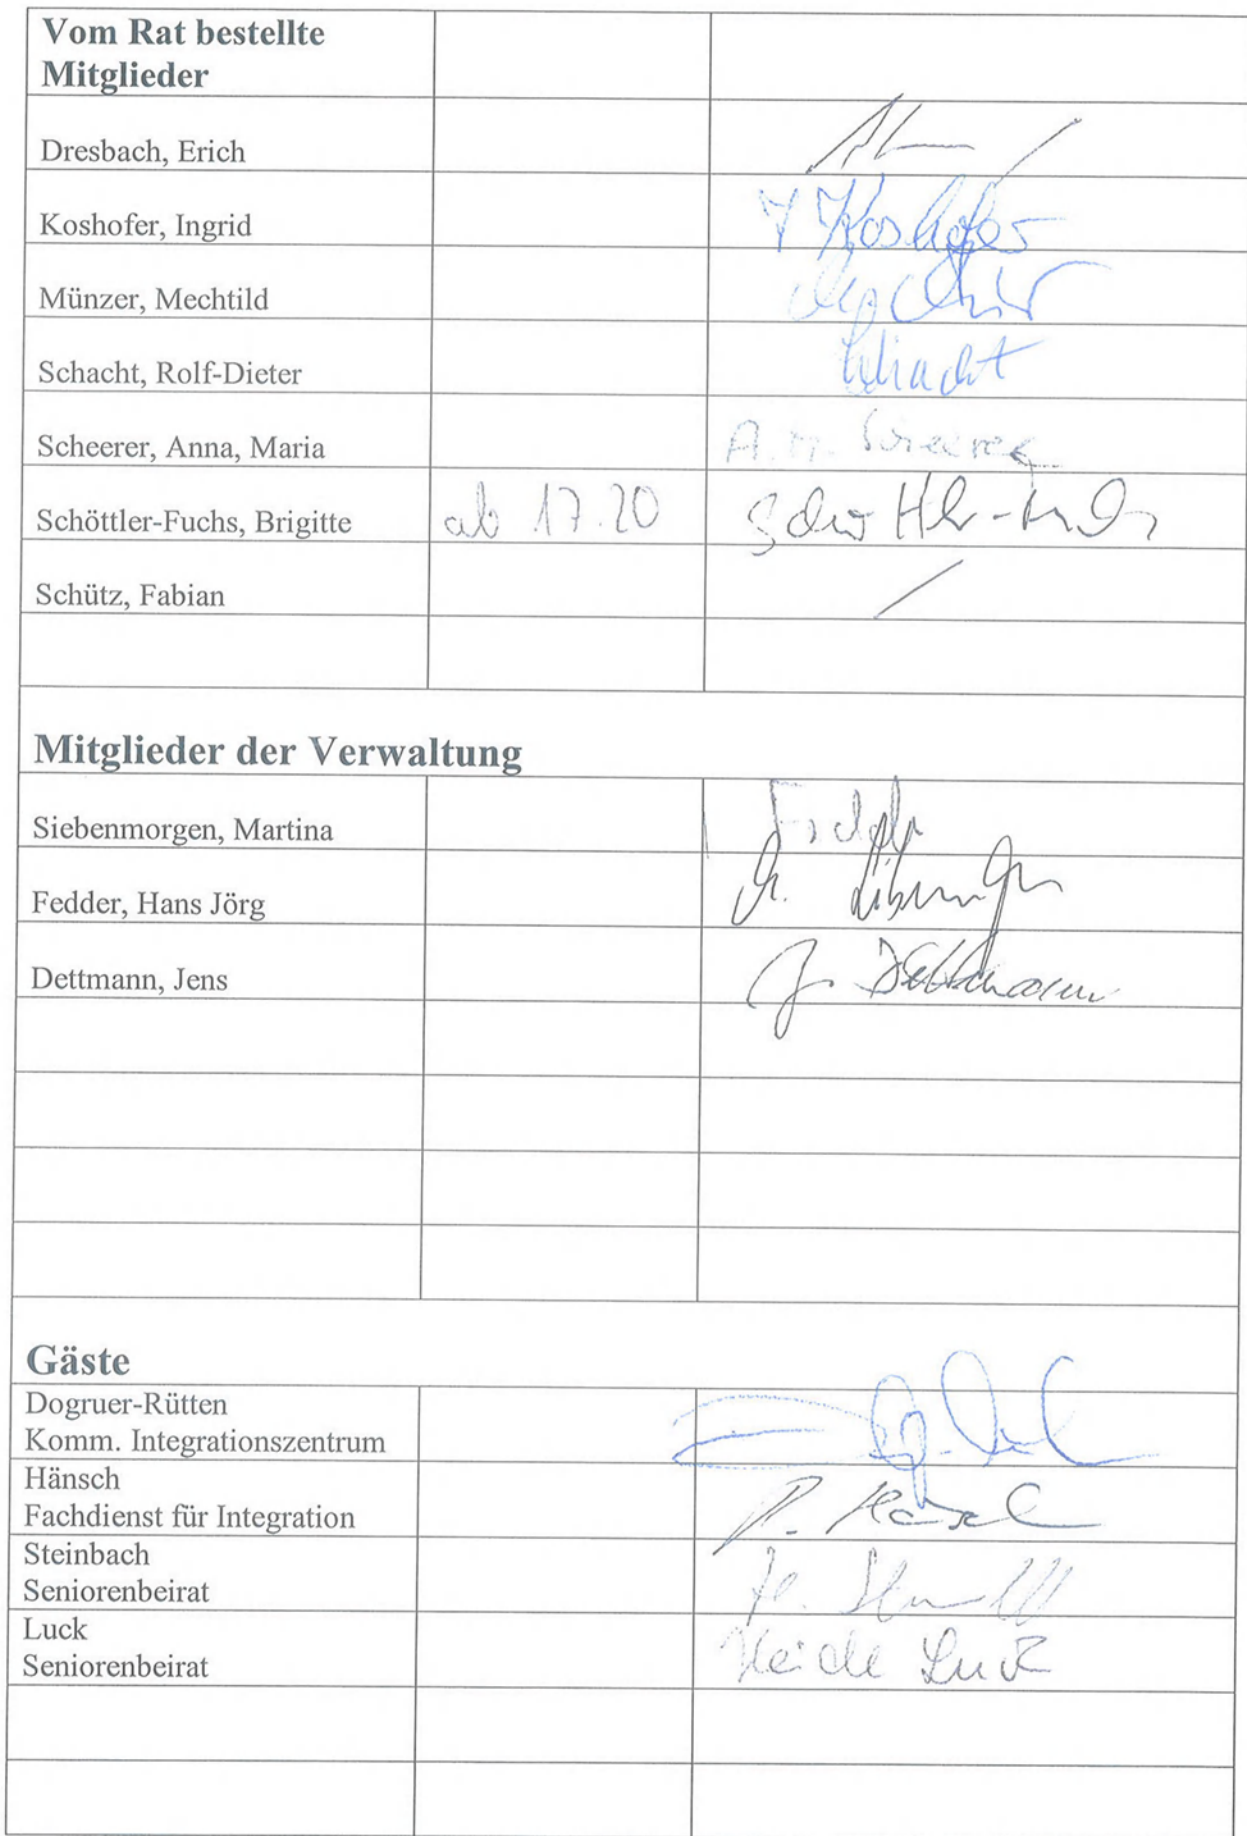 Vom Rat bestellte
Mitglieder
Dresbach, Erich
Koshofer, Ingrid
Koshofer
Münzer, Mechtild
Schacht, Rolf-Dieter
Schacht
Scheerer, Anna, Maria
A. M. Scheerer
Schöttler-Fuchs, Brigitte ab 17.20 Schöttler-Fuchs
Schütz, Fabian
Mitglieder der Verwaltung
Siebenmorgen, Martina
Fedder, Hans Jörg
Dettmann, Jens
J. Dettmann
Gäste
Dogruer-Rütten
Komm. Integrationszentrum
Hänsch
Fachdienst für Integration
Steinbach
Seniorenbeirat
Luck
Seniorenbeirat
Heide Luck